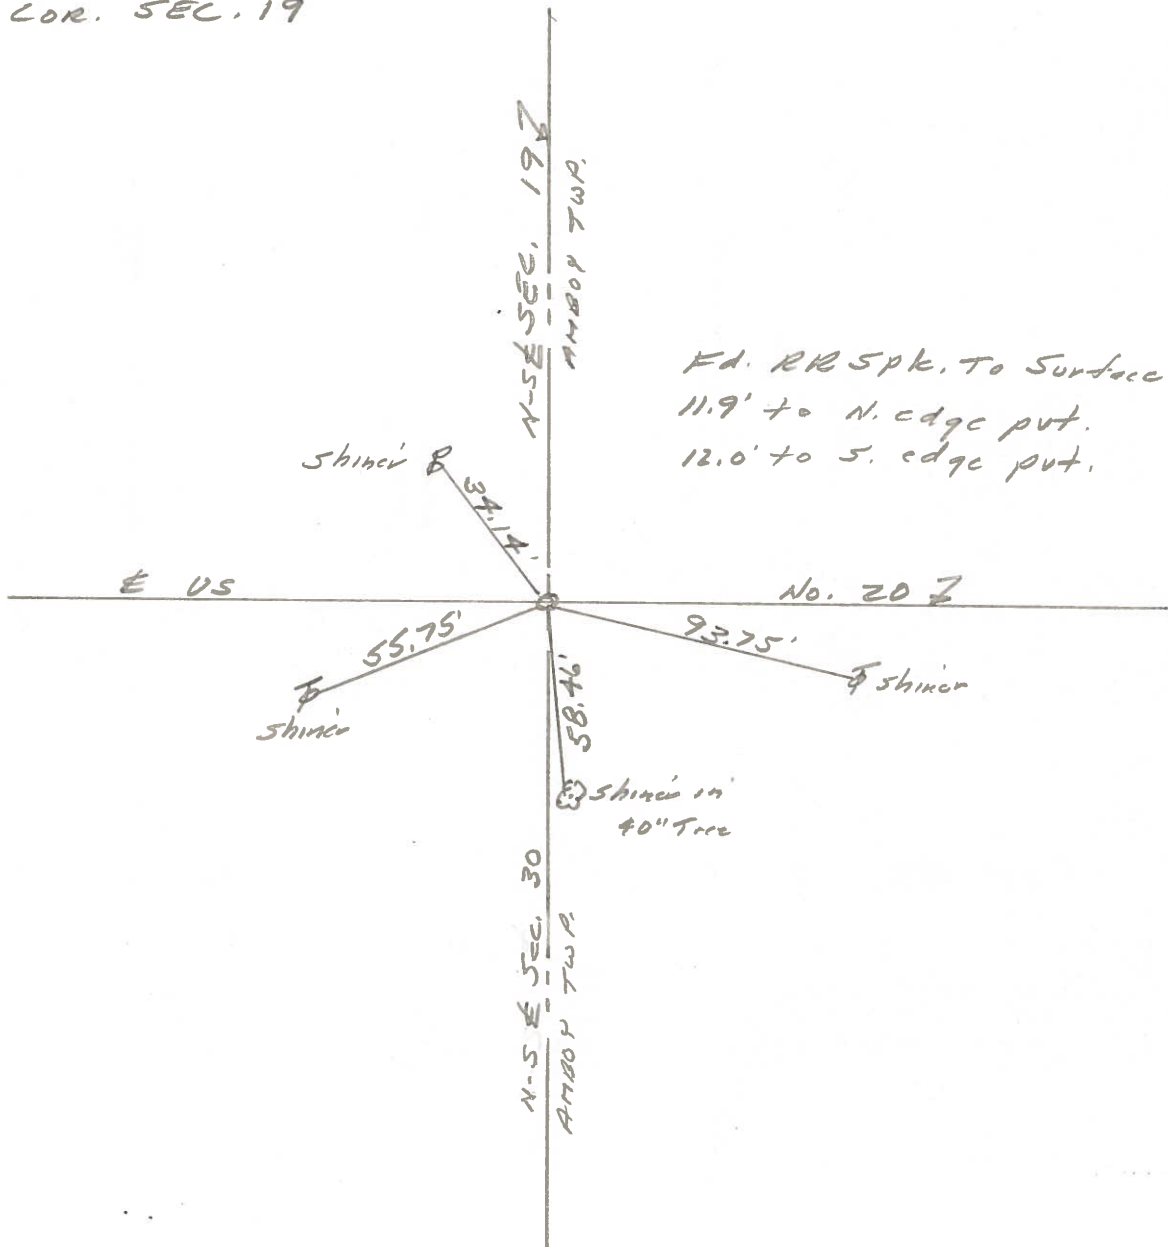 COR. SEC. 19
N-S ℄ SEC. 19
AMBOY TWP.
Fd. RR Spk. To Surface
11.9' to N. edge pvt.
12.0' to S. edge pvt.
shiner
34.14'
℄ US No. 20
55.75'
93.75'
shiner
shiner
58.46'
shiner in
40" Tree
N-S ℄ Sec. 30
AMBOY TWP.